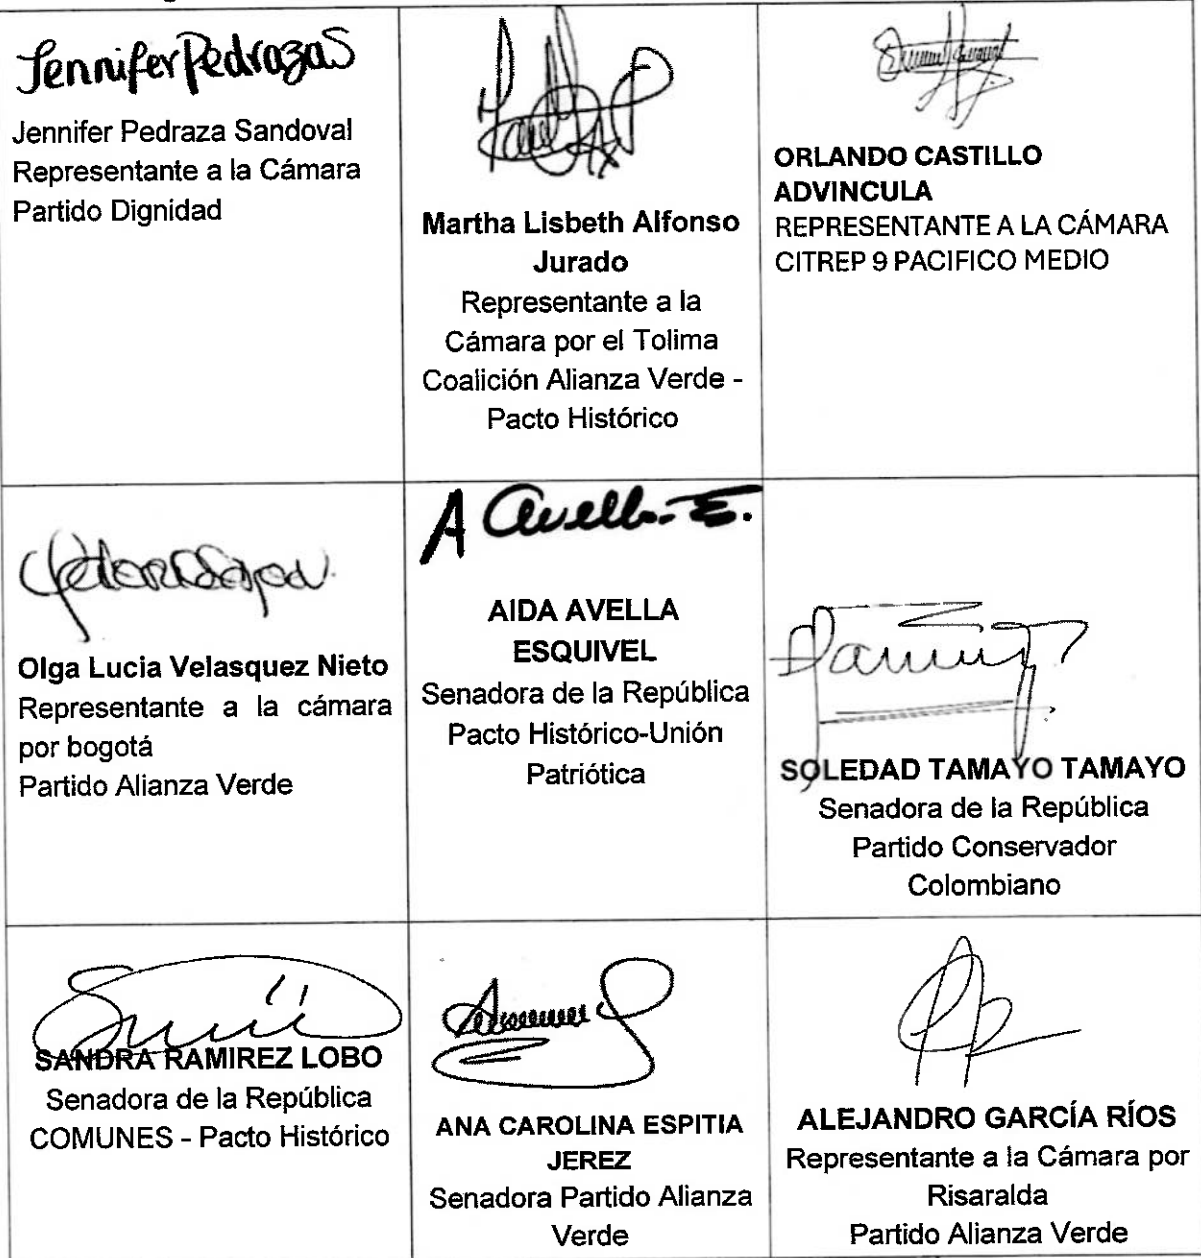 Jennifer Pedraza S
Jennifer Pedraza Sandoval
Representante a la Cámara
Partido Dignidad
Martha Lisbeth Alfonso
Jurado
Representante a la
Cámara por el Tolima
Coalición Alianza Verde -
Pacto Histórico
ORLANDO CASTILLO
ADVINCULA
REPRESENTANTE A LA CÁMARA
CITREP 9 PACIFICO MEDIO
Olga Lucia Velasquez Nieto
Representante a la cámara
por bogotá
Partido Alianza Verde
A Avella E.
AIDA AVELLA
ESQUIVEL
Senadora de la República
Pacto Histórico-Unión
Patriótica
SOLEDAD TAMAYO TAMAYO
Senadora de la República
Partido Conservador
Colombiano
SANDRA RAMIREZ LOBO
Senadora de la República
COMUNES - Pacto Histórico
ANA CAROLINA ESPITIA
JEREZ
Senadora Partido Alianza
Verde
ALEJANDRO GARCÍA RÍOS
Representante a la Cámara por
Risaralda
Partido Alianza Verde